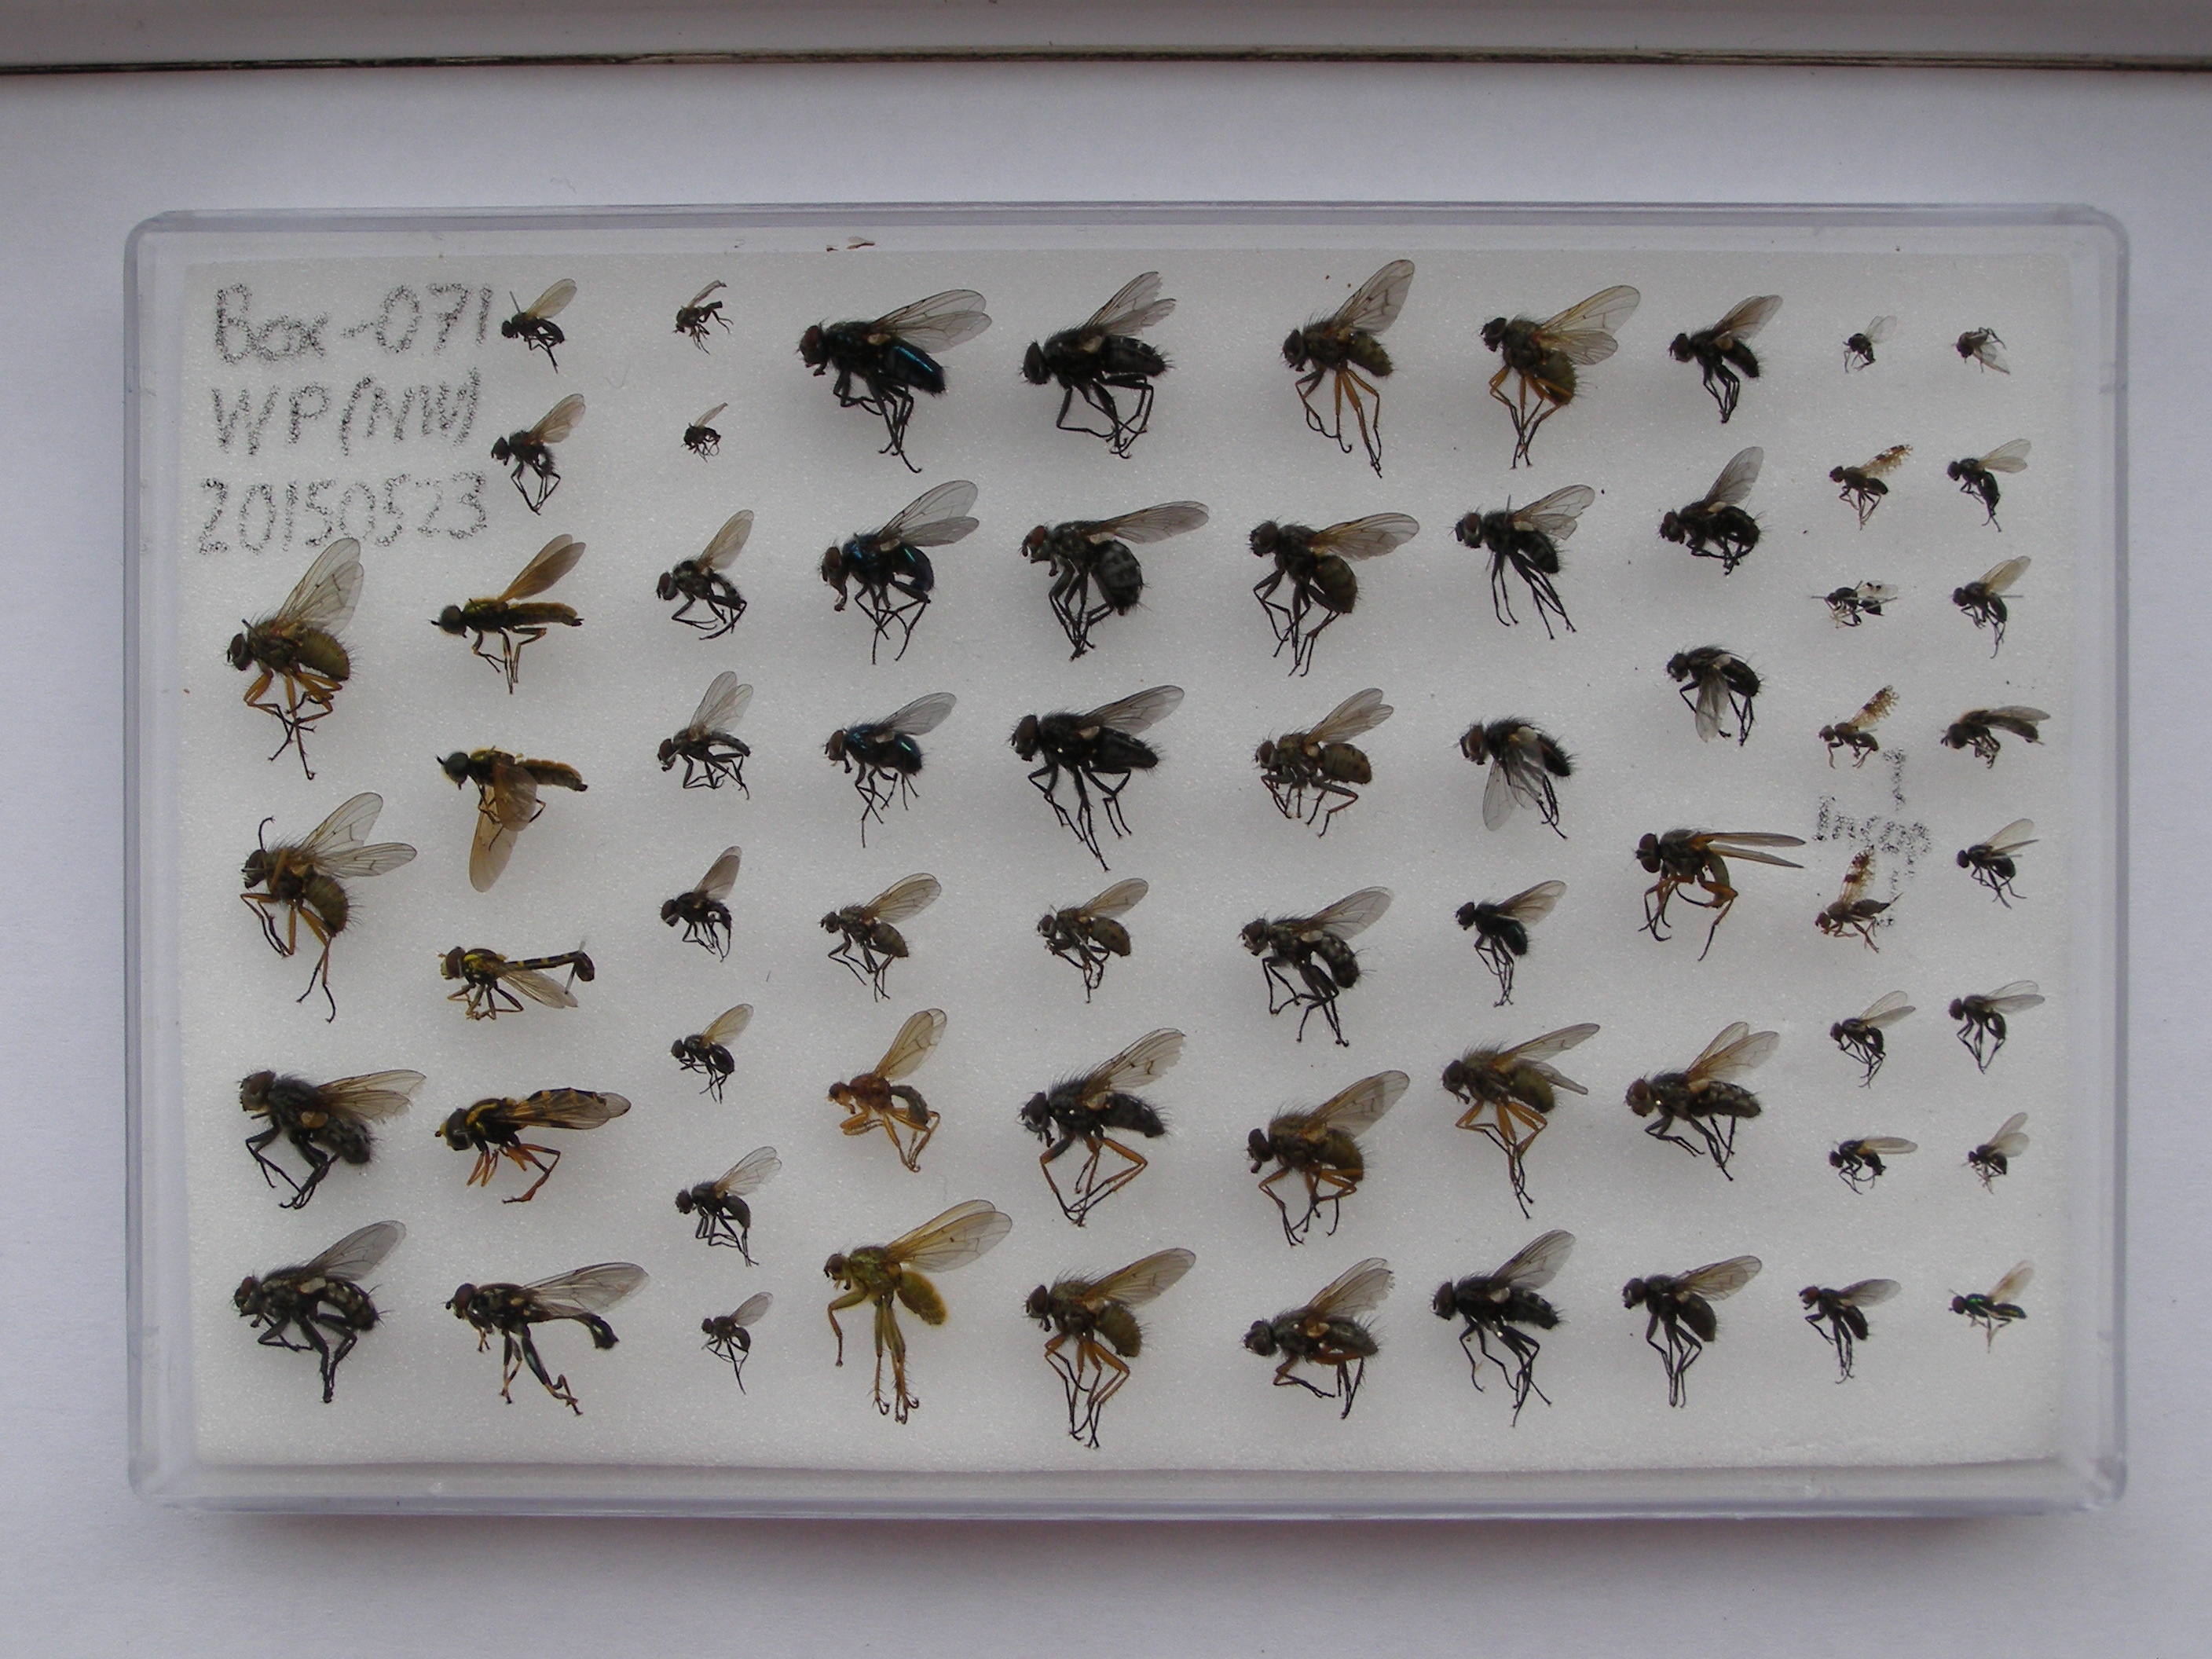 Box-071
WP(NW)
20150523